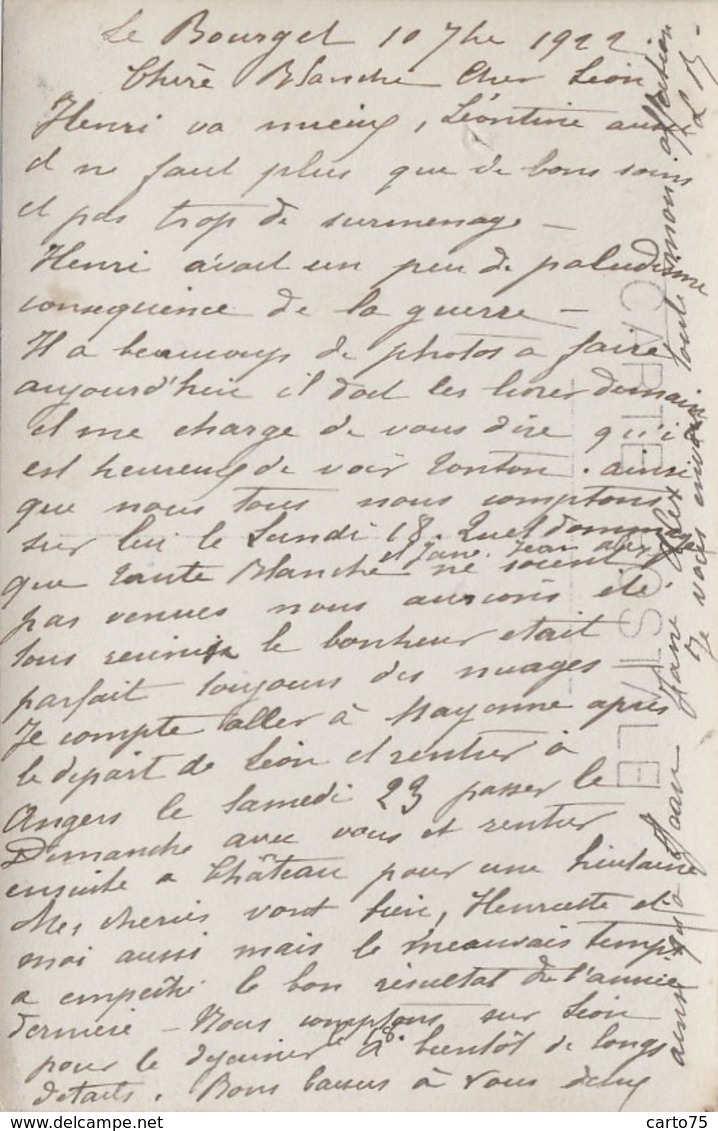 Le Bourget 10 7bre 1922
Chère Blanche Cher Léon
Henri va mieux, Léontine aussi
il ne faut plus que de bons soins
et pas trop de surmenage —
Henri avait un peu de paludisme
consequence de la guerre —
Il a beaucoup de photos a faire
aujourd'hui il doit les livrer demain
il me charge de vous dire qu'il
est heureux de voir tonton. ainsi
que nous tous nous comptons
sur lui le Lundi 18. Quel dommage
que tante Blanche et Jane. Jean Alex ne soient
pas venues nous aurions été
tous reunis le bonheur etait
parfait toujours des nuages
Je compte aller à Mayenne après
le depart de Léon et rentrer à
Angers le Samedi 23 passer le
Dimanche avec vous et rentrer
ensuite a Château pour une huitaine
Mes cheries vont bien, Henriette et
moi aussi mais le mauvais temps
a empeché le bon résultat de l'année
derniere — Nous comptons sur Léon
pour le dejeuner le 18. A bientôt de longs
details. Bons baisers à vous deux
ainsi qu'a Jean Jane Alex
Je vous envoie toute mon affection
CARTE POSTALE
www.delcampe.net
carto75